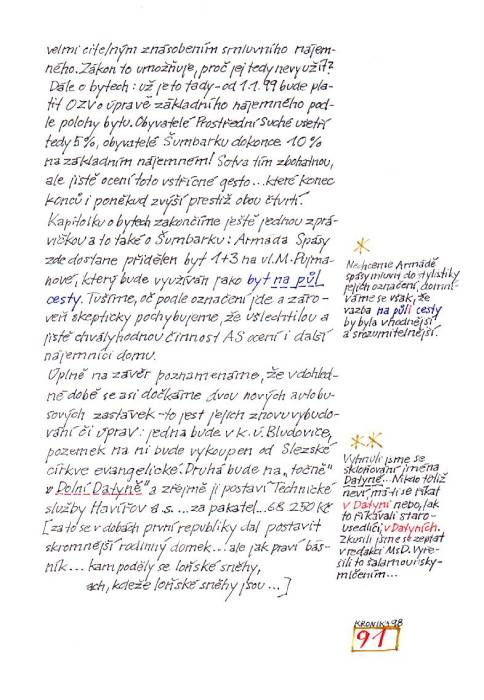 velmi citelným znásobením smluvního nájem-
ného. Zákon to umožňuje, proč jej tedy nevyužít?
Dále o bytech: už je to tady - od 1.1.99 bude pla-
tit OZV o úpravě základního nájemného pod-
le polohy bytu. Obyvatelé Prostřední Suché ušetří
tedy 5%, obyvatelé Šumbarku dokonce 10%
na základním nájemném! Sotva tím zbohatnou,
ale jistě ocení toto vstřícné gesto... které konec
konců i poněkud zvýší prestiž obou čtvrtí.
Kapitolku o bytech zakončíme ještě jednou zprá-
vičkou a to také o Šumbarku: Armáda Spásy
zde dostane přidělen byt 1+3 na ul. M. Pujma-
nové, který bude využíván jako byt na půl
cesty. Tušíme, oč podle označení jde a záro-
veň skepticky pochybujeme, že ušlechtilou a
jistě chvályhodnou činnost AS ocení i další
nájemníci domu.
Úplně na závěr poznamenáme, že v dohled-
né době se asi dočkáme dvou nových autobu-
sových zastávek - to jest jejich znovuvybudo-
vání či úprav: jedna bude v k.ú. Bludovice,
pozemek na ni bude vykoupen od Slezské
církve evangelické. Druhá bude na "točně"
v Dolní Datyně" a zřejmě ji postaví Technické
služby Havířov a.s. ... za pakatel... 68 250 Kč
[za to se v dobách první republiky dal postavit
skromnější rodinný domek... ale jak praví bás-
ník... kam poděly se loňské sněhy,
ach, kdeže loňské sněhy jsou ...]
*
Nechceme Armádě
spásy mluvit do stylistiky
jejich označení, domní-
váme se však, že
vazba na půli cesty
by byla vhodnější
a srozumitelnější.
**
Vyhnuli jsme se
skloňování jména
Datyně... Nikdo totiž
neví, má-li se říkat
v Datyni nebo, jak
to říkávali staro-
usedlíci, v Datyních.
Zkusili jsme se zeptat
v redakci MsD. Vyře-
šili to šalamounsky-
mlčením...
KRONIKA 98
91